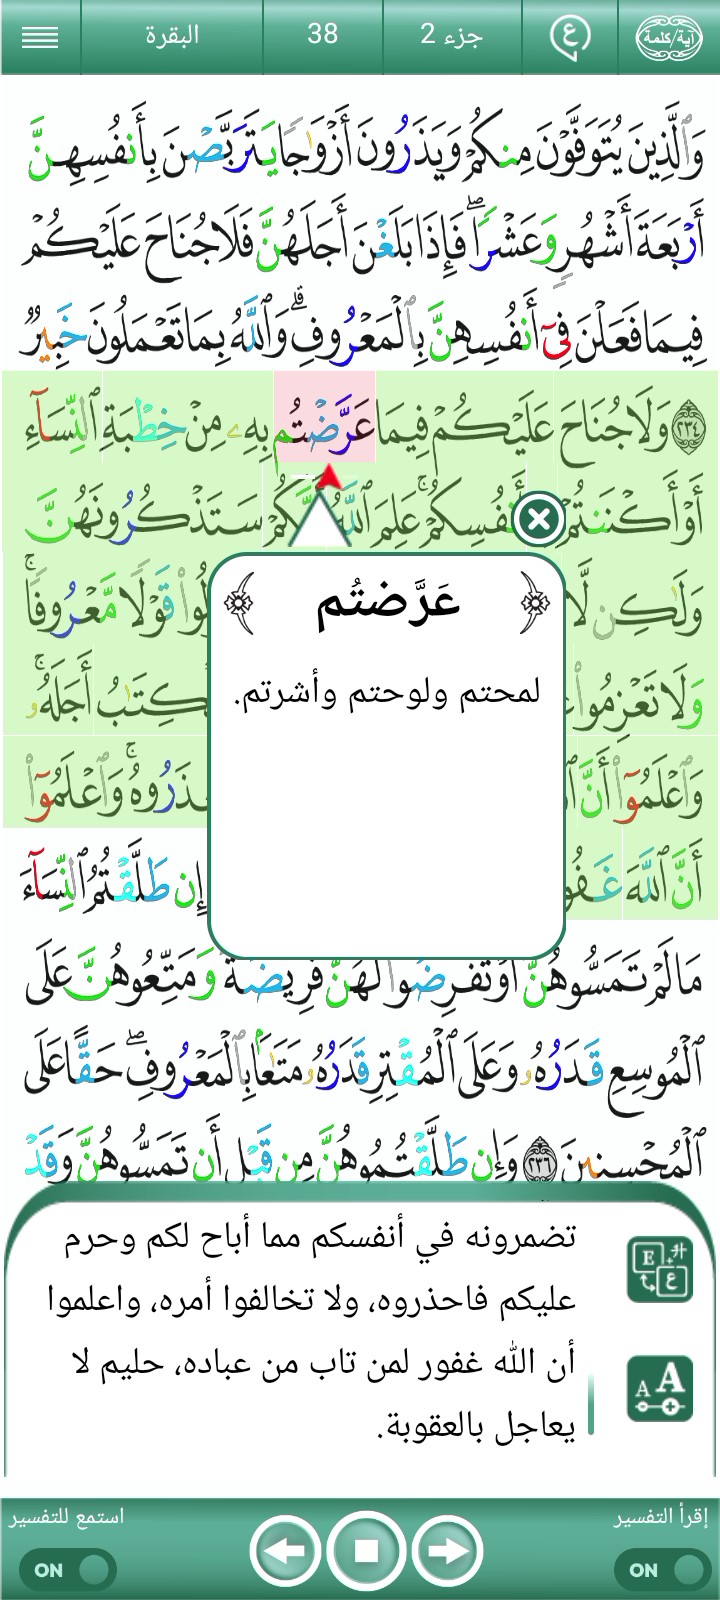 آية/كلمة
ع
جزء 2
38
البقرة
وَٱلَّذِينَ يُتَوَفَّوْنَ مِنكُمْ وَيَذَرُونَ أَزْوَٰجًا يَتَرَبَّصْنَ بِأَنفُسِهِنَّ
أَرْبَعَةَ أَشْهُرٍ وَعَشْرًا ۖ فَإِذَا بَلَغْنَ أَجَلَهُنَّ فَلَا جُنَاحَ عَلَيْكُمْ
فِيمَا فَعَلْنَ فِىٓ أَنفُسِهِنَّ بِٱلْمَعْرُوفِ ۗ وَٱللَّهُ بِمَا تَعْمَلُونَ خَبِيرٌ
٢٣٤ وَلَا جُنَاحَ عَلَيْكُمْ فِيمَا عَرَّضْتُم بِهِۦ مِنْ خِطْبَةِ ٱلنِّسَآءِ
أَوْ أَكْنَنتُمْ أَنفُسِكُمْ ۚ عَلِمَ ٱللَّهُ سَتَذْكُرُونَهُنَّ
وَلَٰكِن لَّا قَوْلًا مَّعْرُوفًا ۚ
وَلَا تَعْزِمُوا۟ أَجَلَهُۥ ۚ
وَٱعْلَمُوٓا۟ أَنَّ وَٱعْلَمُوٓا۟
أَنَّ ٱللَّهَ إِن طَلَّقْتُمُ ٱلنِّسَآءَ
عَرَّضتُم
لمحتم ولوحتم وأشرتم.
مَا لَمْ تَمَسُّوهُنَّ أَوْ تَفْرِضُوا۟ لَهُنَّ فَرِيضَةً وَمَتِّعُوهُنَّ عَلَى
ٱلْمُوسِعِ قَدَرُهُۥ وَعَلَى ٱلْمُقْتِرِ قَدَرُهُۥ مَتَٰعًۢا بِٱلْمَعْرُوفِ ۖ حَقًّا عَلَى
ٱلْمُحْسِنِينَ ٢٣٦ وَإِن طَلَّقْتُمُوهُنَّ مِن قَبْلِ أَن تَمَسُّوهُنَّ وَقَدْ
تضمرونه في أنفسكم مما أباح لكم وحرم
عليكم فاحذروه، ولا تخالفوا أمره، واعلموا
أن الله غفور لمن تاب من عباده، حليم لا
يعاجل بالعقوبة.
إقرأ التفسير
استمع للتفسير
ON
ON